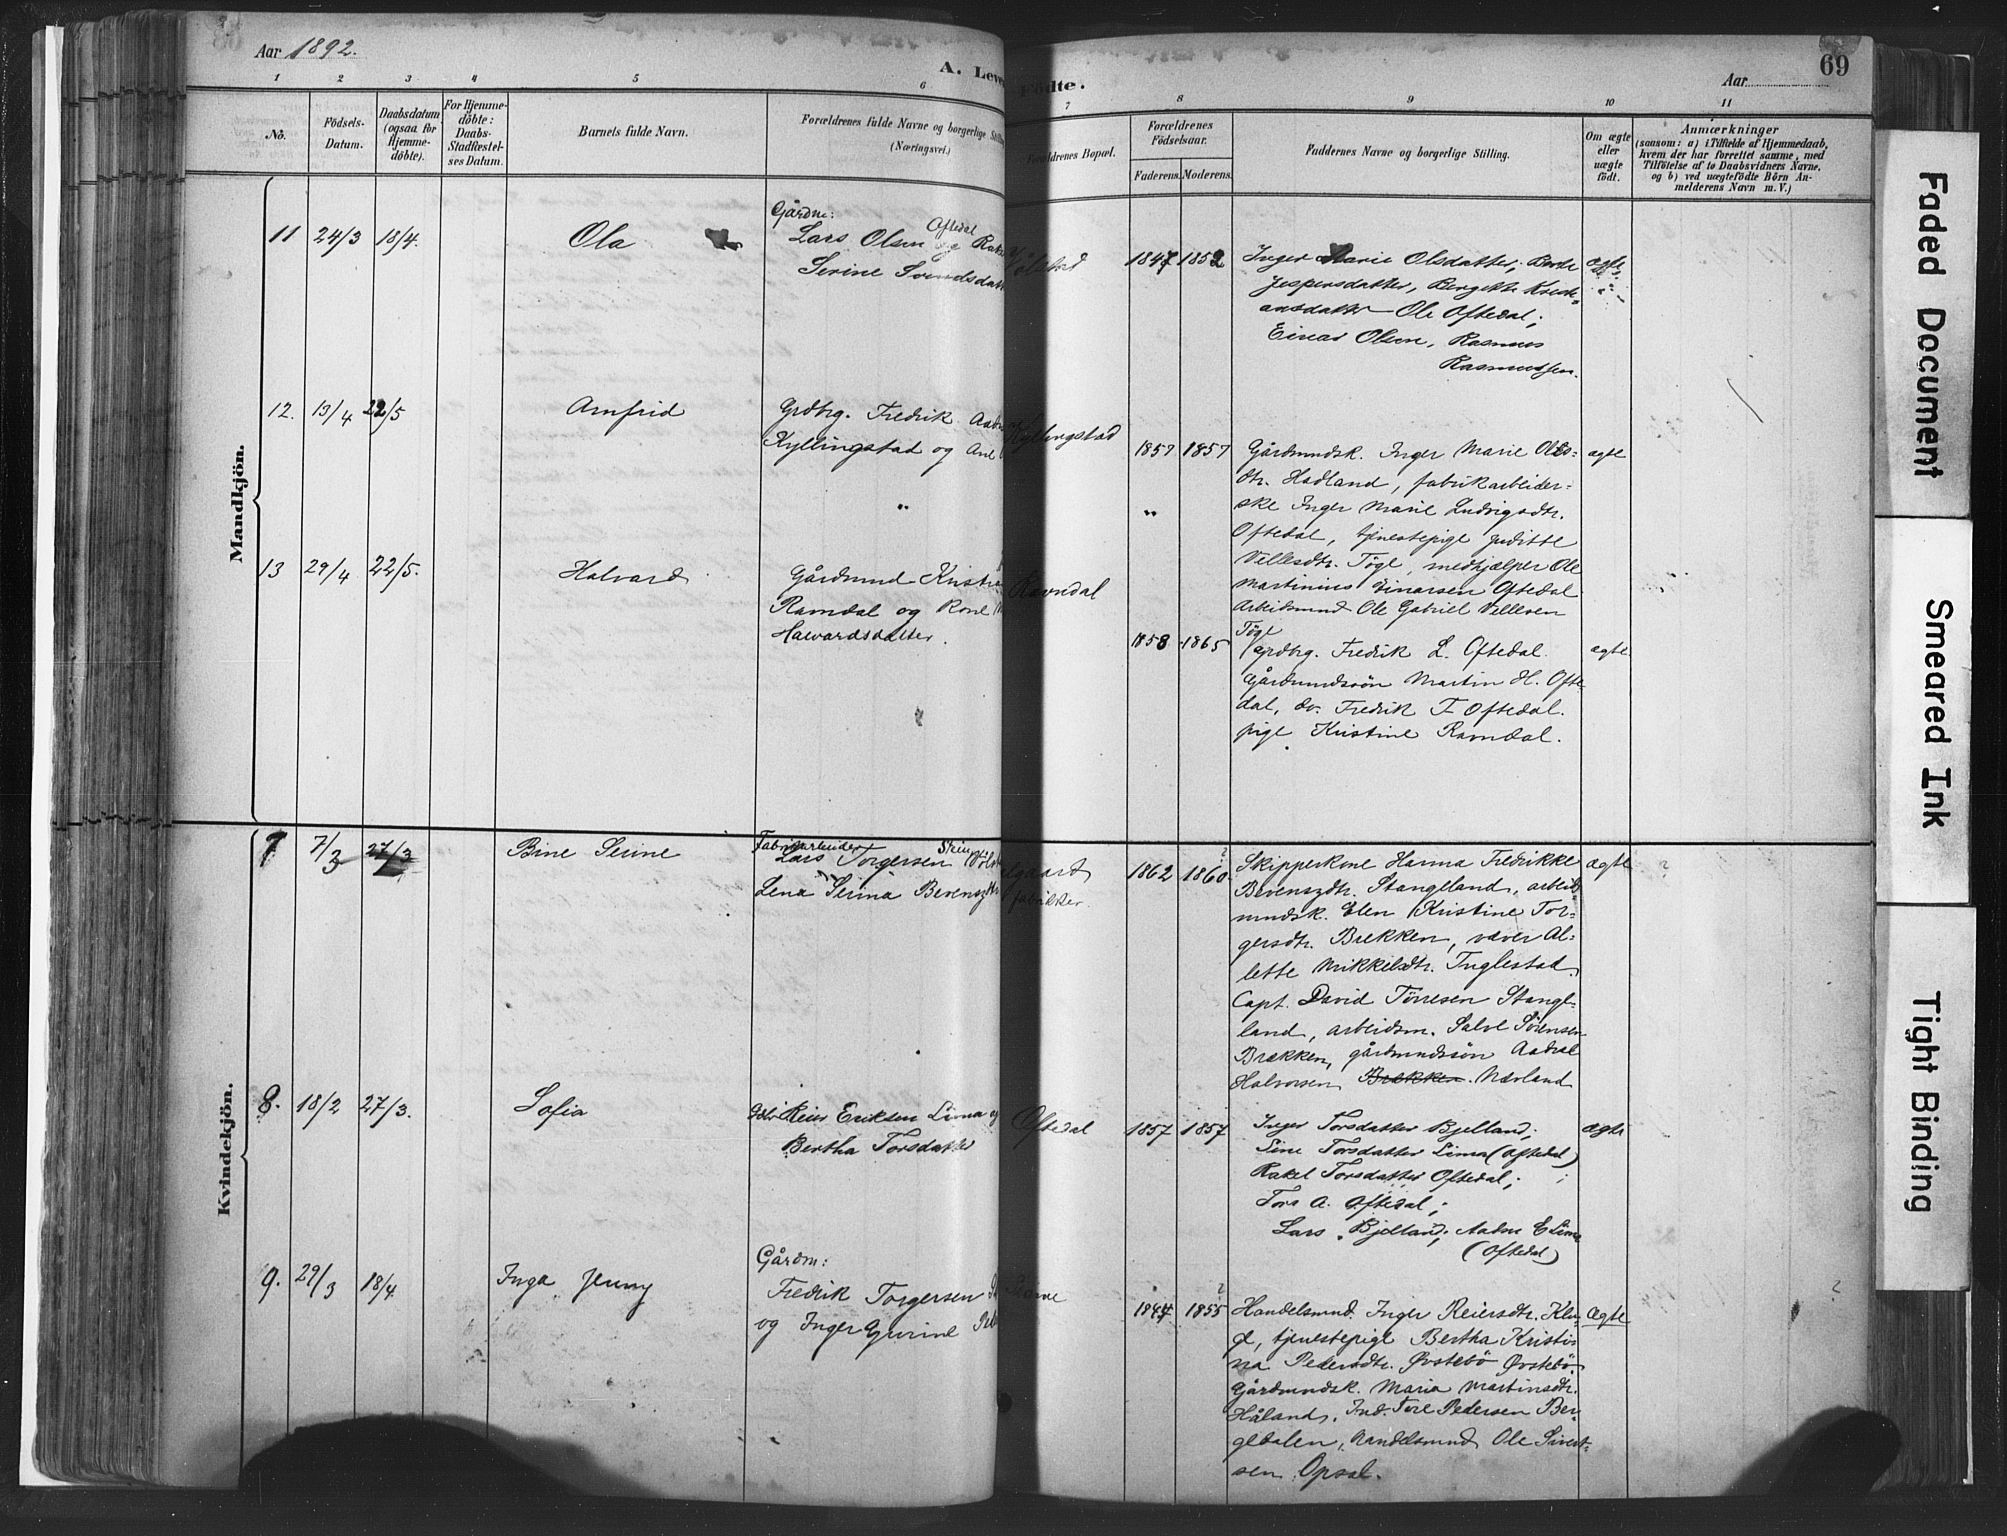 Aar 1892.
69
A. Leve
Fødte.
Aar
1 2 3 4 5 6 7 8 9 10 11
No.
Fødsels-
Datum.
Daabsdatum
(ogsaa for
Hjemme-
døbte).
For Hjemme-
døbte:
Daabs-
Stadfæstel-
ses Datum.
Barnets fulde Navn.
Forældrenes fulde Navne og borgerlige Stilling
(Næringsvei.)
Forældrenes Bopæl.
Forældrenes
Fødselsaar.
Faderens. Moderens.
Faddernes Navne og borgerlige Stilling.
Om ægte
eller
uægte
født.
Anmærkninger
(saasom: a) i Tilfælde af Hjemmedaab,
hvem der har forrettet samme, med
Tilføielse af to Daabsvidners Navne,
og b) ved uægtefødte Børn An-
melderens Navn m.V.)
Mandkjøn.
11 24/3 18/4. Ola
Gårdm:
Lars Olsen Oftedal og Rakel
Serine Svendsdatt
1847 1852
Inger Marie Olsdatter, Berte
Jespersdatter, Bergitte Kristi-
ansdatter Ole Oftedal,
Einar Olsen, Rasmus
Rasmussen.
ægte
12. 13/4 22/5 Arnfrid
Grdbrg. Fredrik Aadn
Kyllingstad og Ane
Kyllingstad
1857 1857
Gårdmndsk. Inger Marie Ols-
dtr. Hadland, fabrikarbeider-
ske Inger Marie Ludvigsdtr.
Oftedal, tjenestepige Juditte
Villesdtr. Tøge, medhjælper Ole
Martinius Einarsen Oftedal
Arbeidsmnd Ole Gabriel Villesen
Tøge
ægte
13 29/4 22/5. Halvard
Gårdmnd Kristia
Ravndal og Rone
Halvardsdatter.
Ravndal
1858 1865
Grdbrg. Fredrik L. Oftedal.
Gårdmndssøn Martin H. Ofte
dal, do. Fredrik F Oftedal.
pige Kristine Ravndal.
ægte
Kvindekjøn.
7 7/3 27/3 Bine Serine
Fabrikarbeider
Lars Torgersen
Lena Serina Berentzdtr
lgaard
fabrikker.
1862 1860 ?
Skipperkone Hanna Fredrikke
Berentzdtr. Stangeland, arbeids
mndsk. Elen Kristine Tor-
gersdtr. Brekken, væver Al-
lette Mikkelsdtr. Tuglestad.
Capt. David Tönnesen Stange-
land, arbeidsm. Salve Sörensen
Brækken, gårdmndssøn Aadnel
Halvorsen Brækken. Nærland
ægte ?
8. 18/2 27/3. Sofia
Reier Eriksen Lima og
Bertha Torsdatter
Oftedal
1857 1857
Inger Torsdatter Bjelland,
Sine Torsdatter Lima (Oftedal)
Rakel Torsdatter Oftedal;
Tore A. Oftedal;
Lars Bjelland, Aadne E Lima
(Oftedal)
ægte
9. 29/3 18/4 Inga Jenny
Gårdm:
Fredrik Torgersen
og Inger Gurine
1844 1855 ?
Handelsmnd. Inger Reiersdtr. Kle
pp, tjenestepige Bertha Kristi
na Pedersdtr. Øvstebö Øvstebö,
Gårdmndsk. Maria Martinsdtr.
Håland, Ind. Tore Pedersen Ber-
gedalen, Handelsmnd Ole Sivert-
sen Opsal.
Ægte ?
Faded Document
Smeared Ink
Tight Binding